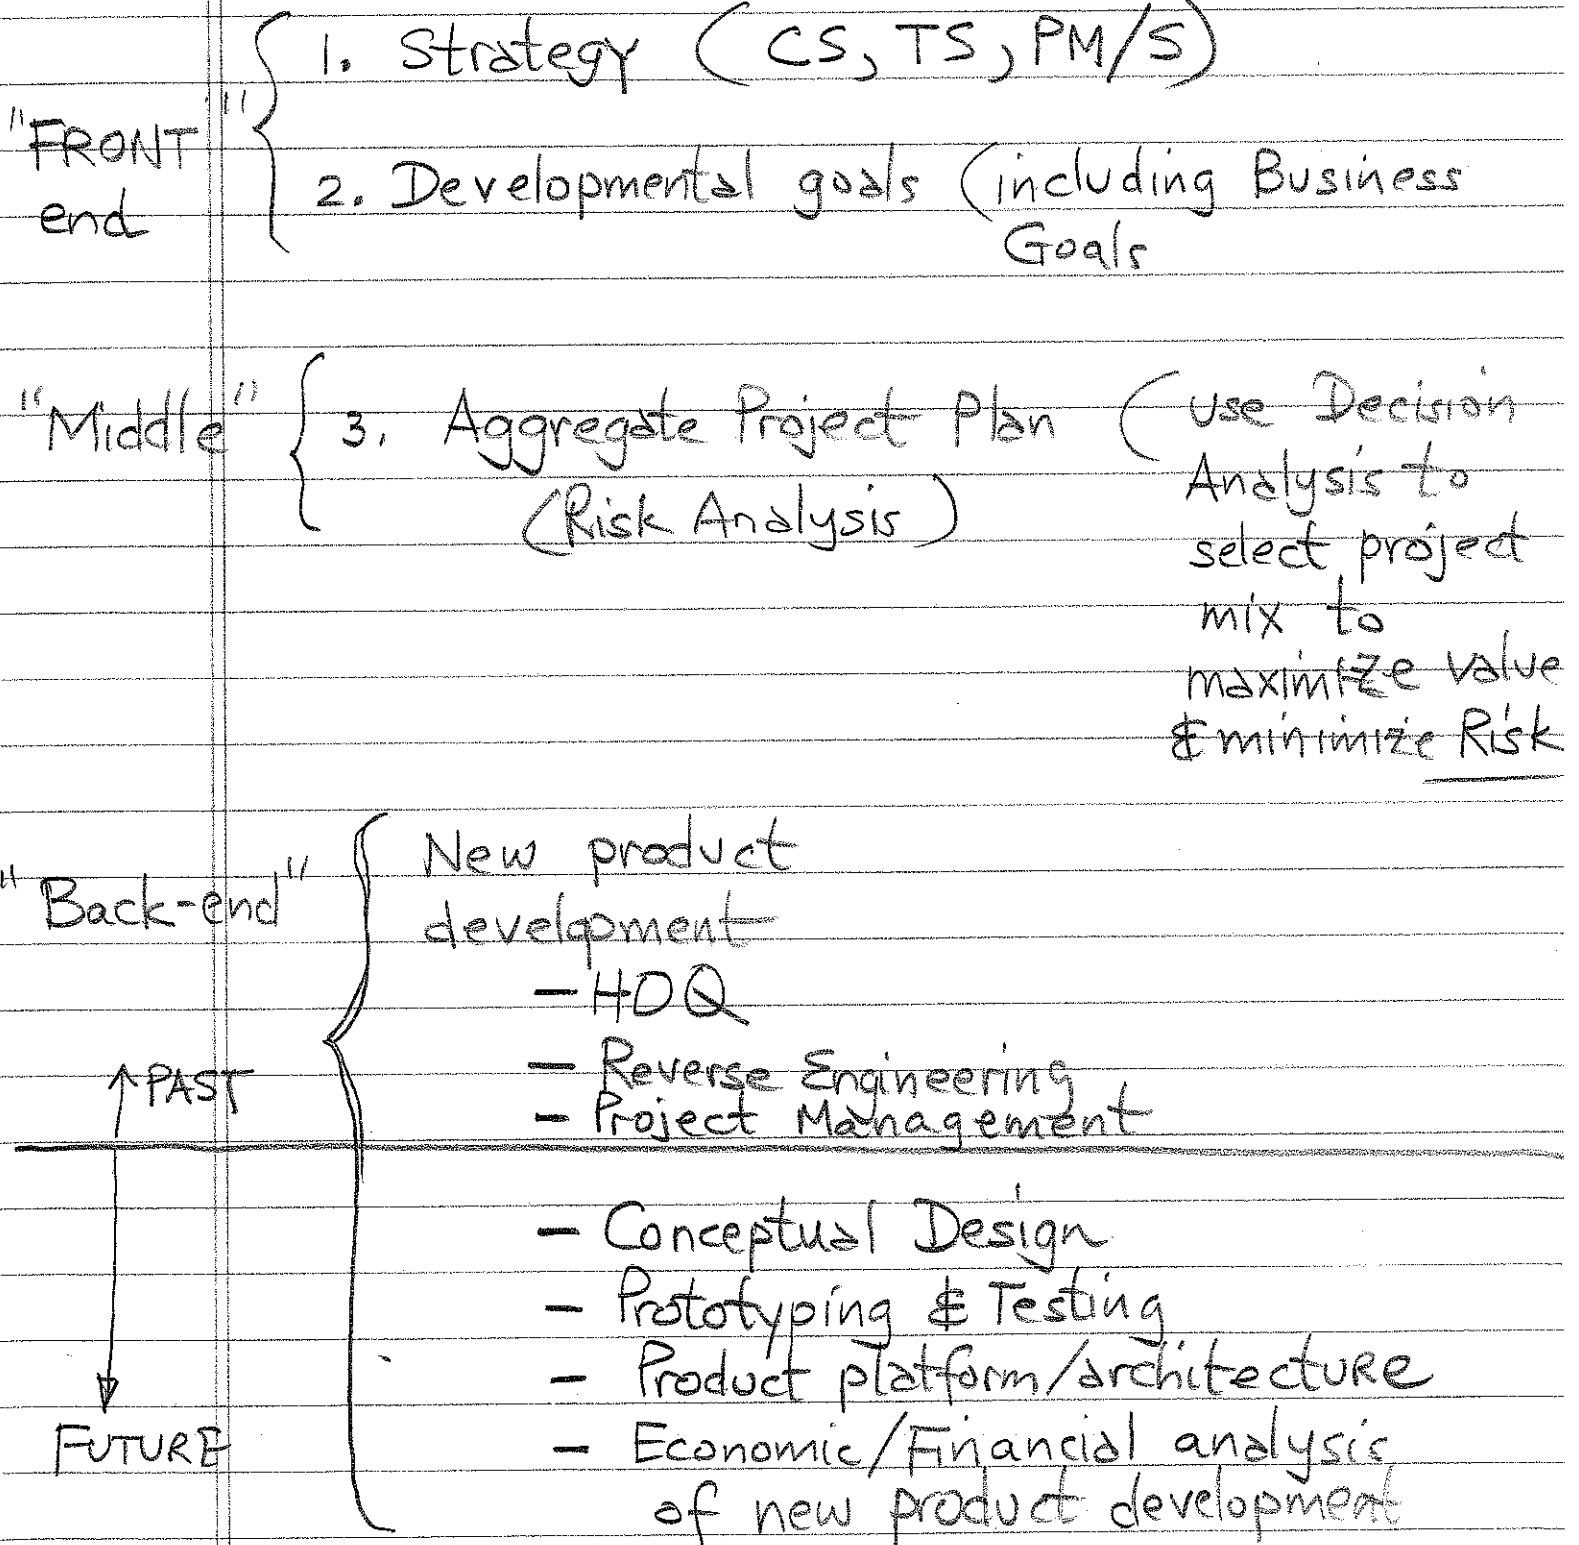 1. Strategy (CS, TS, PM/S)
"FRONT"
end
2. Developmental goals (including Business
Goals
"Middle"
3. Aggregate Project Plan (use Decision
(Risk Analysis)
Analysis to
select project
mix to
maximize value
& minimize Risk
"Back-end"
New product
development
- HOQ
- Reverse Engineering
↑ PAST
- Project Management
- Conceptual Design
- Prototyping & Testing
- Product platform/architecture
FUTURE
- Economic/Financial analysis
of new product development